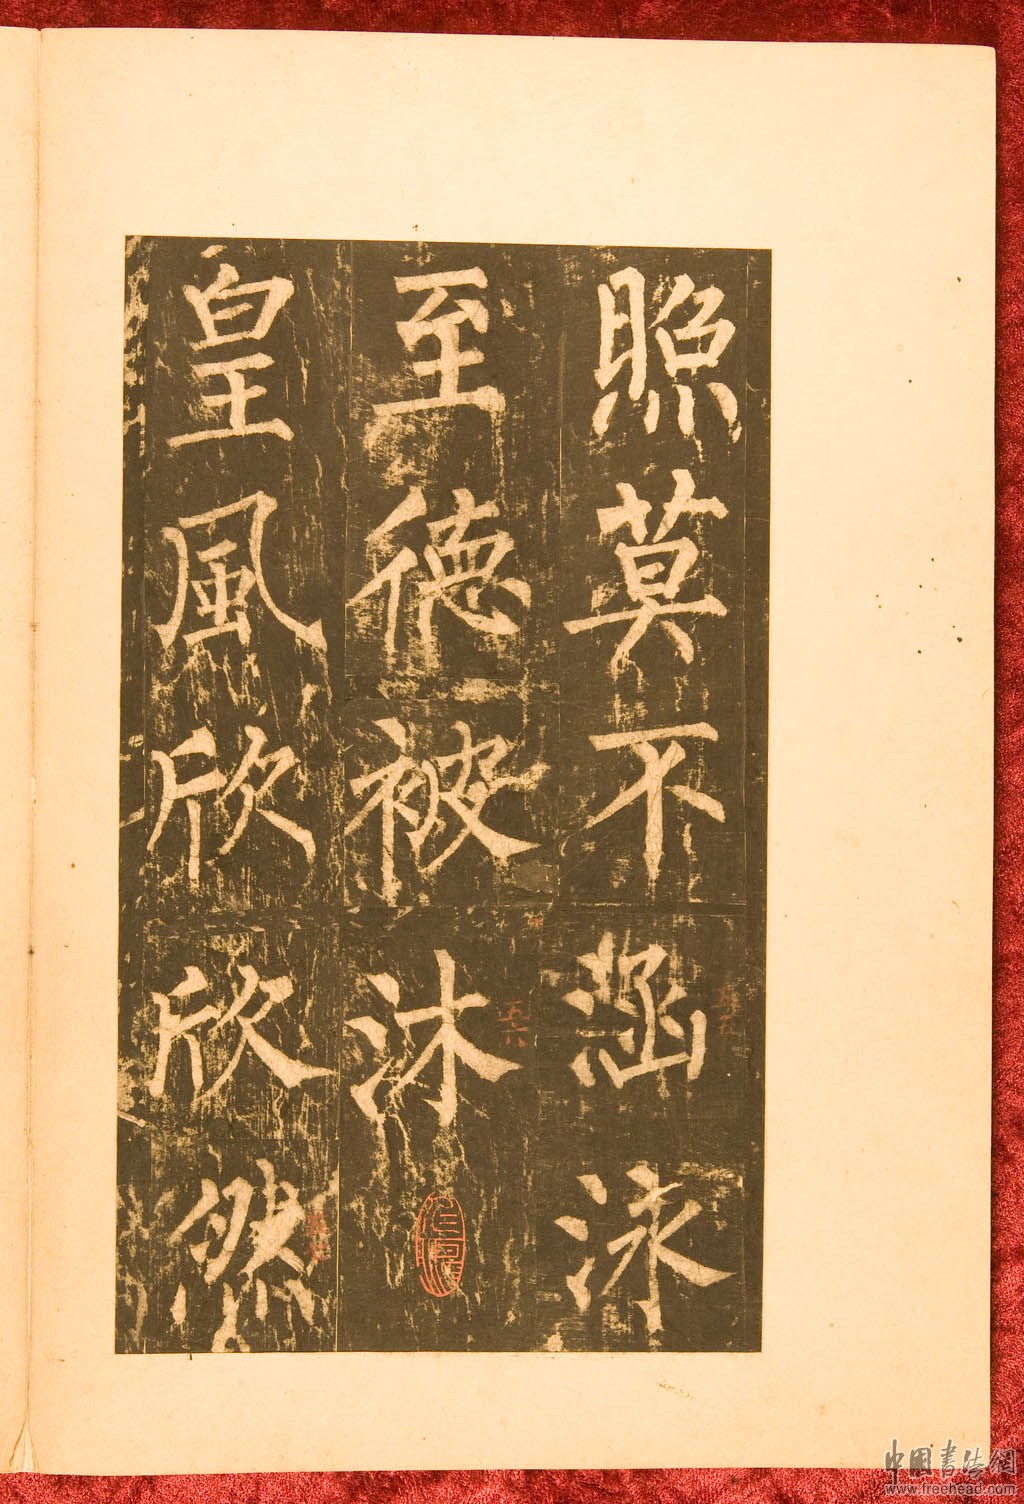 照莫不涵泳
至德被沐
皇風欣欣然
五五
五六
中国书法网
www.freehead.com